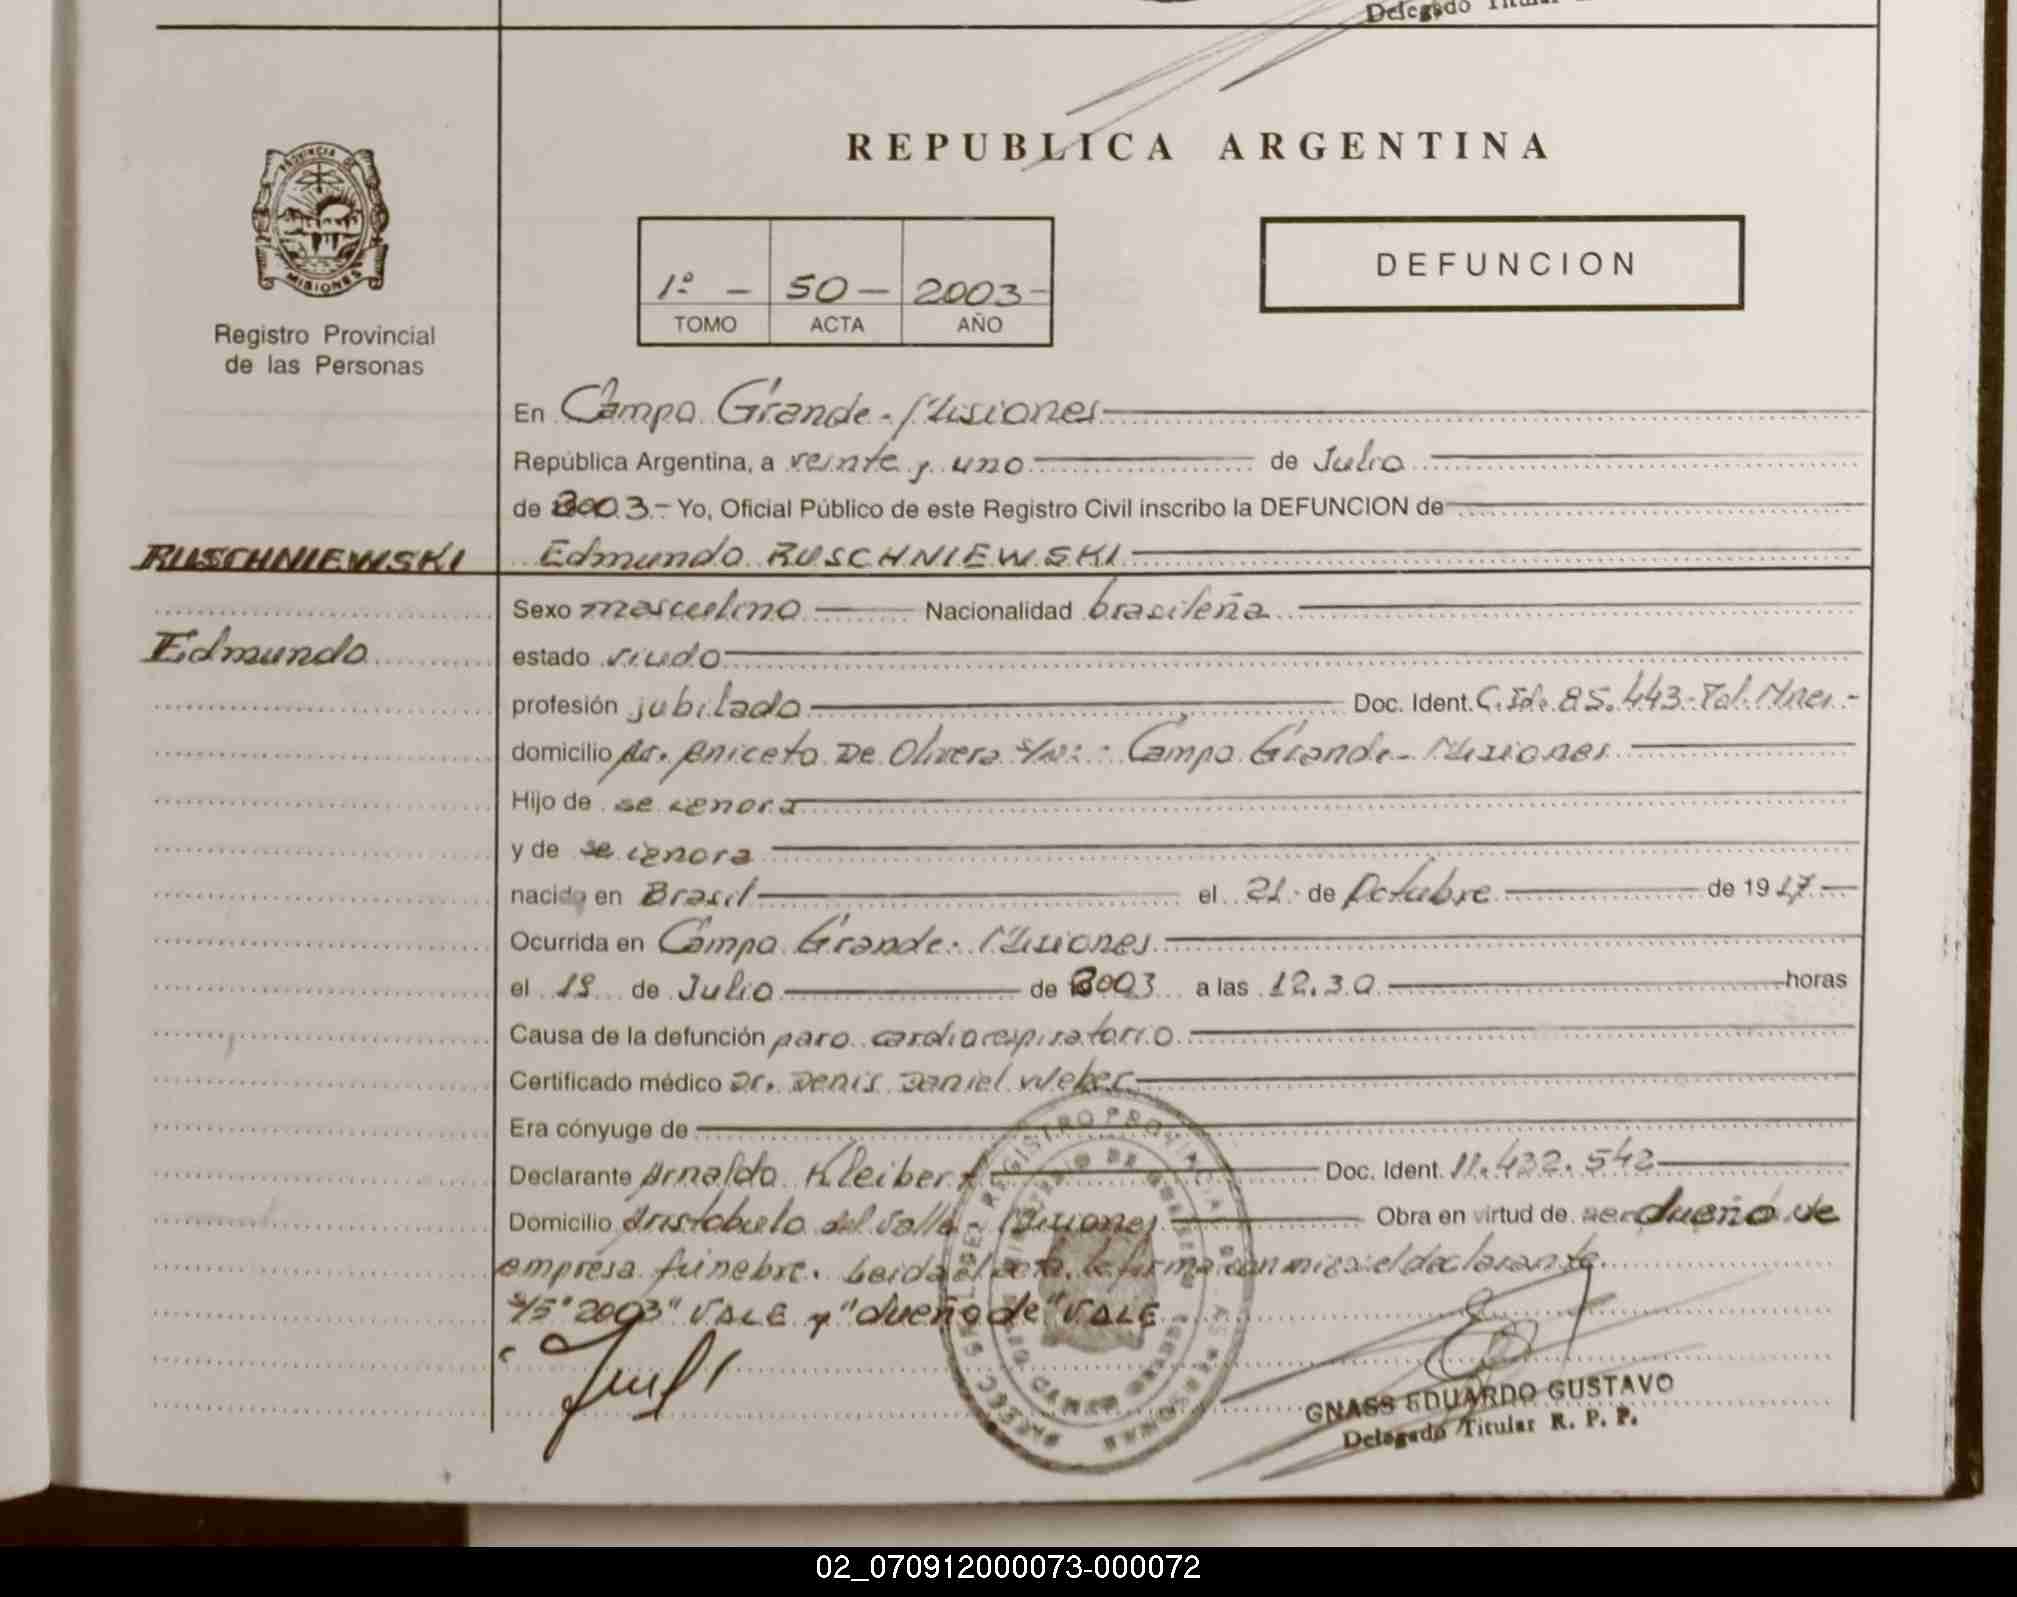 Delegado Titular
REPUBLICA ARGENTINA
PROVINCIA DE
MISIONES
Registro Provincial
de las Personas
1º - 50 - 2003 -
TOMO ACTA AÑO
DEFUNCION
En Campo Grande - Misiones
República Argentina, a veinte y uno de Julio
de 2003 - Yo, Oficial Público de este Registro Civil inscribo la DEFUNCION de
RUSCHNIEWSKI
Edmundo RUSCHNIEWSKI
Edmundo
Sexo masculino Nacionalidad brasileña
estado viudo
profesión jubilado Doc. Ident. C. Id. 85.443 - Pol. Mnes -
domicilio Av. Aniceto De Olivera s/nº - Campo Grande - Misiones
Hijo de se ignora
y de se ignora
nacido en Brasil el 21 de Octubre de 1917
Ocurrida en Campo Grande - Misiones
el 19 de Julio de 2003 a las 12.30 horas
Causa de la defunción paro cardiorespiratorio
Certificado médico Dr. Denis Daniel Weber
Era cónyuge de
Declarante Arnaldo Kleibert Doc. Ident. 11.432.542
Domicilio Aristobulo del Valle - Misiones Obra en virtud de ser dueño de
empresa fúnebre. Leida el acta, la firma conmigo el declarante
s/r "2003" VALE y "dueño de" VALE
GNASS EDUARDO GUSTAVO
Delegado Titular R. P. P.
02_070912000073-000072